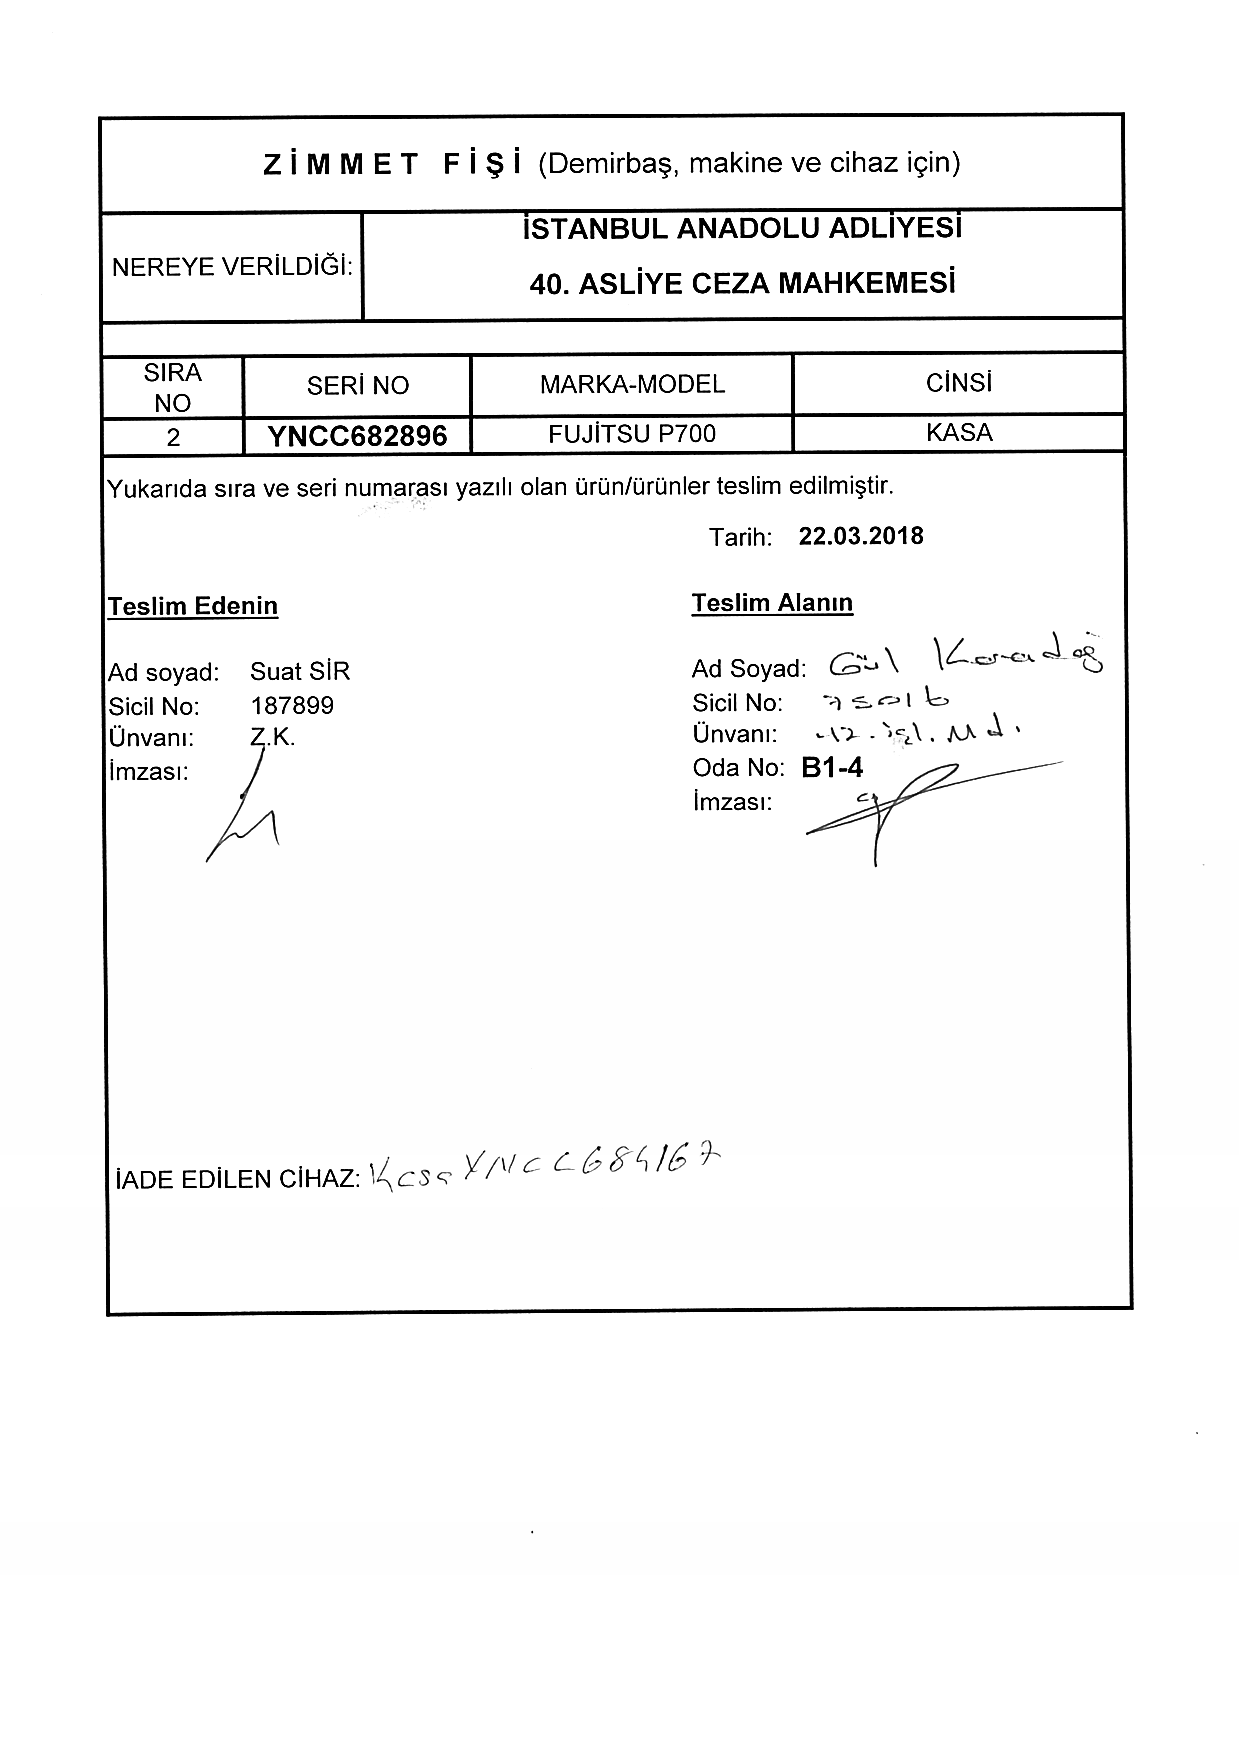 ZİMMET FİŞİ (Demirbaş, makine ve cihaz için)
NEREYE VERİLDİĞİ:
İSTANBUL ANADOLU ADLİYESİ
40. ASLİYE CEZA MAHKEMESİ
SIRA NO SERİ NO MARKA-MODEL CİNSİ
2 YNCC682896 FUJİTSU P700 KASA
Yukarıda sıra ve seri numarası yazılı olan ürün/ürünler teslim edilmiştir.
Tarih: 22.03.2018
Teslim Edenin
Ad soyad: Suat SİR
Sicil No: 187899
Ünvanı: Z.K.
İmzası:
Teslim Alanın
Ad Soyad: Gül Karadağ
Sicil No:
Ünvanı:
Oda No: B1-4
İmzası:
İADE EDİLEN CİHAZ: Kasa YNCC684167